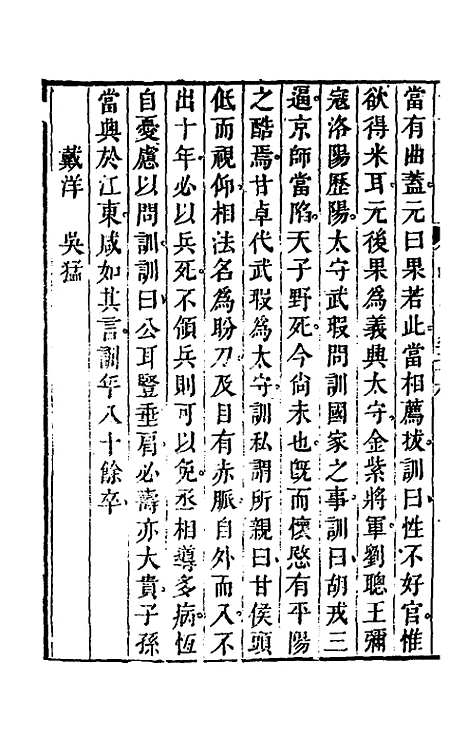 當有曲蓋元曰果若此當相薦拔訓曰性不好官惟
欲得米耳元後果爲義興太守金紫將軍劉聰王彌
寇洛陽歷陽太守武瑕問訓國家之事訓曰胡戎三
逼京師當陷天子野死今尚未也旣而懷愍有平陽
之酷焉甘卓代武瑕爲太守訓私謂所親曰甘侯頭
低而視仰相法名爲盼刀及目有赤脈自外而入不
出十年必以兵死不領兵則可以免丞相導多病恆
自憂慮以問訓訓曰公耳豎垂肩必壽亦大貴子孫
當興於江東咸如其言訓年八十餘卒
戴洋 吳猛